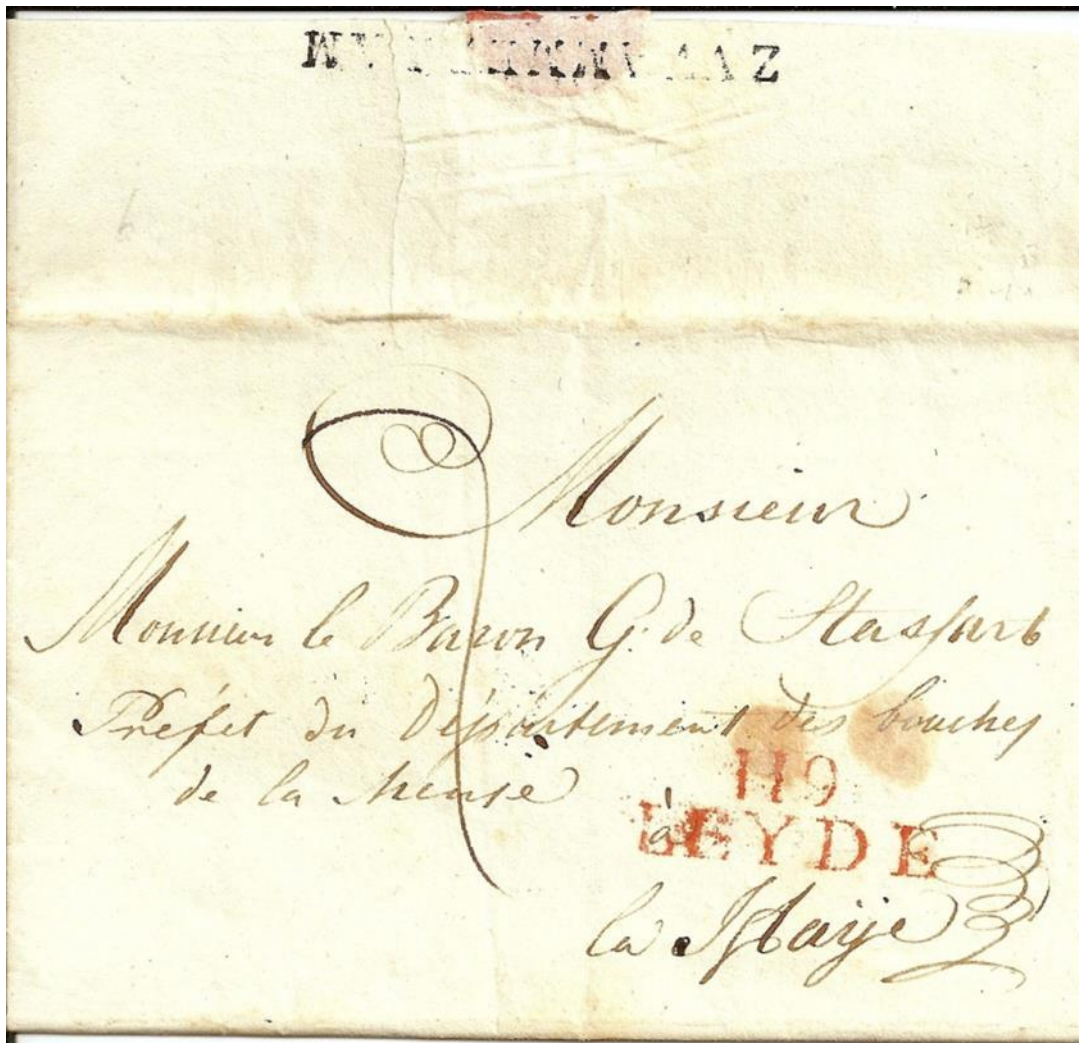 Monsieur
Monsieur le Baron G. de Stassart
Préfet du Département des bouches
de la Meuse
119
LEYDE
à
la Haije